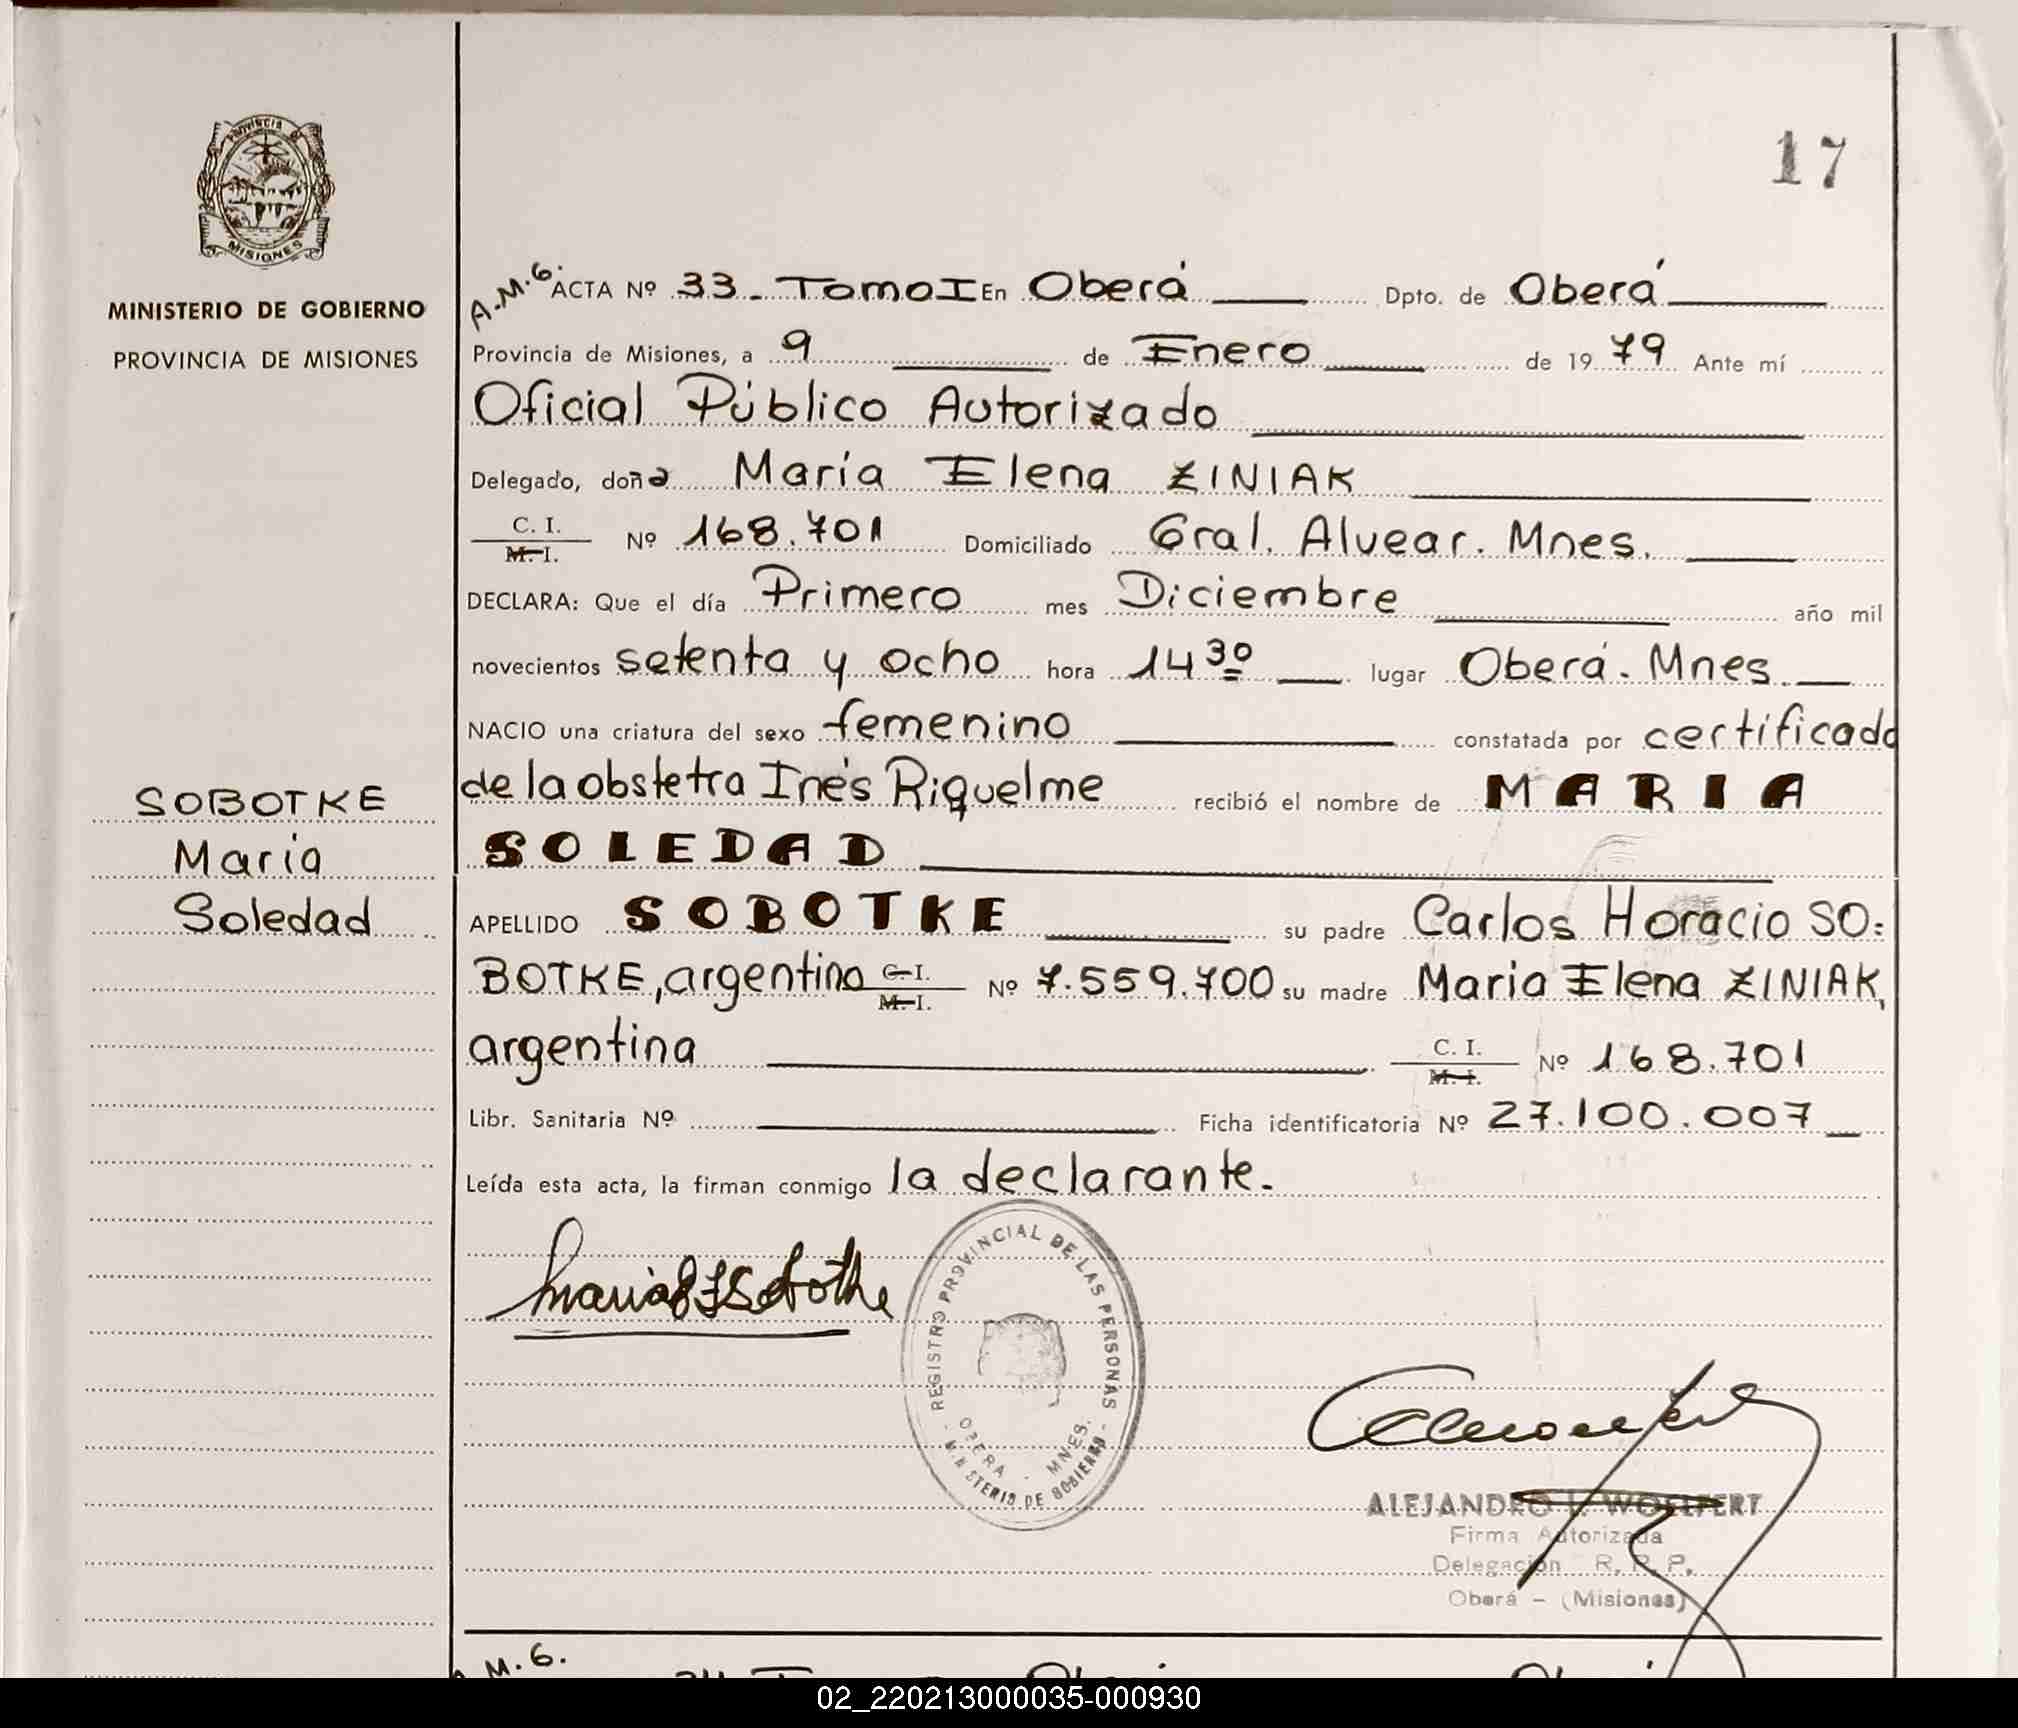 17
PROVINCIA DE
MISIONES
MINISTERIO DE GOBIERNO
PROVINCIA DE MISIONES
A.M.G. ACTA Nº 33. Tomo I En Oberá Dpto. de Oberá
Provincia de Misiones, a 9 de Enero de 1979 Ante mí
Oficial Público Autorizado
Delegado, doña María Elena ZINIAK
C. I. M. I. Nº 168.701 Domiciliado Gral. Alvear. Mnes.
DECLARA: Que el día Primero mes Diciembre año mil
novecientos setenta y ocho hora 14 30 lugar Oberá. Mnes.
NACIO una criatura del sexo femenino constatada por certificado
de la obstetra Inés Riquelme recibió el nombre de MARIA
SOLEDAD
SOBOTKE
Maria
Soledad
APELLIDO SOBOTKE su padre Carlos Horacio SO=
BOTKE, argentino C. I. M. I. Nº 7.559.700 su madre Maria Elena ZINIAK,
argentina C. I. M. I. Nº 168.701
Libr. Sanitaria Nº Ficha identificatoria Nº 27.100.007
Leída esta acta, la firman conmigo la declarante.
REGISTRO PROVINCIAL DE LAS PERSONAS
OBERA - MNES.
MINISTERIO DE GOBIERNO
ALEJANDRO L. WOELFERT
Firma Autorizada
Delegación R. P. P.
Oberá - (Misiones)
M. G.
02_220213000035-000930